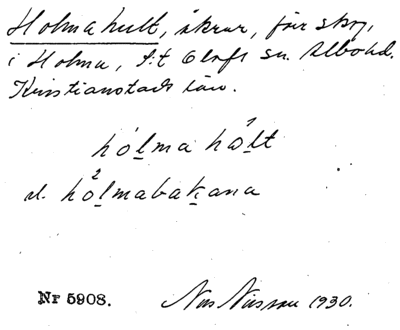 Holmahult, åkrar, förr skog,
i Holma, S:t Olofs sn. Albo hd.
Kristianstads län.
hólma hòlt
el. hòlmabakana
Nr 5908. Nils Nilsson 1930.